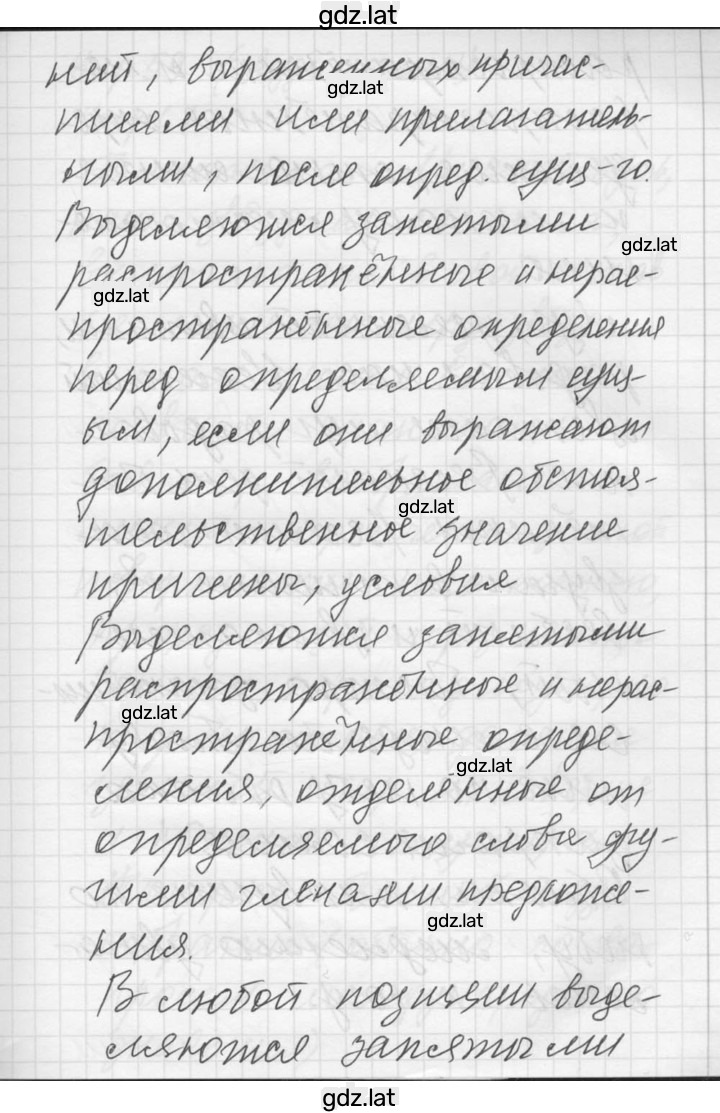 gdz.lat
ний, выраженных причас-
gdz.lat
тиями или прилагатель-
ными, после опред. сущ-го.
Выделяются запятыми
gdz.lat
распространённые и нерас-
gdz.lat
пространённые определения
перед определяемым сущ-
ым, если они выражают
дополнительное обстоя-
gdz.lat
тельственное значение
причины, условия
Выделяются запятыми
распространённые и нерас-
gdz.lat
пространённые опреде-
gdz.lat
ления, отделённые от
определяемого слова дру-
гими членами предложе-
gdz.lat
ния.
В любой позиции выде-
ляются запятыми
gdz.lat